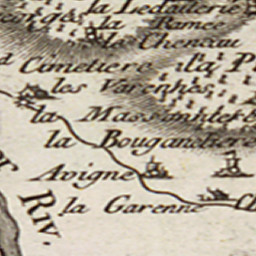 la Ledallerie
eorges la Ramee
le Chenau
d Cimetiere la P
les Varenhes
la Massonniere
la Bougandiere
Avigne
la Garenne Ch
Riv.